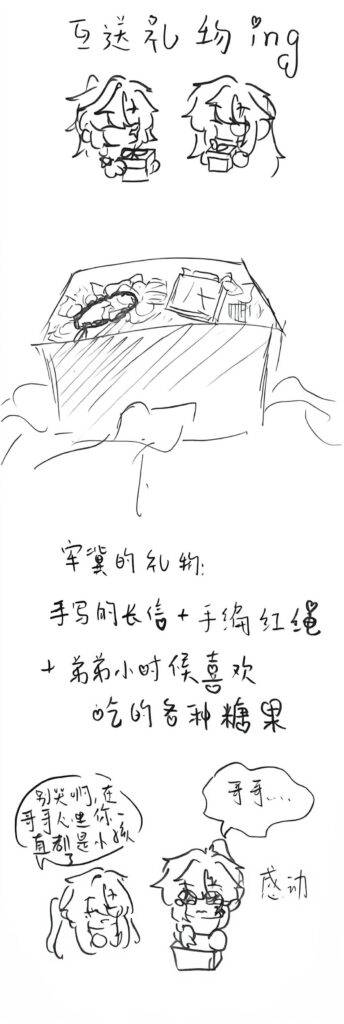 互送礼物ing
牢冀的礼物:
手写的长信+手编红绳
+弟弟小时候喜欢
吃的各种糖果
别哭啊,在
哥哥人是你一
直都是小孩
了
哥哥....
感动